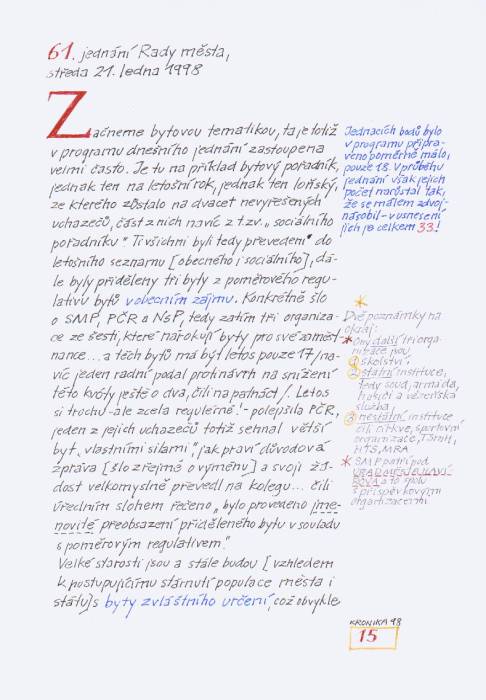 61. jednání Rady města,
středa 21. ledna 1998
Začneme bytovou tematikou, ta je totiž
v programu dnešního jednání zastoupena
velmi často. Je tu na příklad bytový pořadník,
jednak ten na letošní rok, jednak ten loňský,
ze kterého zůstalo na dvacet nevyřešených
uchazečů, část z nich navíc z t.zv. „sociálního
pořadníku". Ti všichni byli tedy převedeni do
letošního seznamu [obecného i sociálního], dá-
le byly přiděleny tři byty z poměrového regu-
lativu bytů v obecním zájmu. Konkrétně šlo
o SMP, PČR a NsP, tedy zatím tři organiza-
ce ze šesti, které nárokují byty pro své zaměst-
nance... a těch bytů má být letos pouze 17/na-
víc jeden radní podal protinávrh na snížení
této kvóty ještě o dva, čili na patnáct/. Letos
si trochu - ale zcela regulérně! - polepšila PČR,
jeden z jejích uchazečů totiž sehnal větší
byt „vlastními silami", jak praví důvodová
zpráva [šlo zřejmě o výměnu] a svoji žá-
dost velkomyslně převedl na kolegu... čili
úředním slohem řečeno „bylo provedeno jme-
novité přeobsazení přiděleného bytu v souladu
s poměrovým regulativem."
Velké starosti jsou a stále budou [vzhledem
k postupujícímu stárnutí populace města i
státu] s byty zvláštního určení, což obvykle
Jednacích bodů bylo
v programu připra-
veno poměrně málo,
pouze 18. V průběhu
jednání však jejich
počet narůstal tak,
že se málem zdvoj-
násobil - v usnesení
jich je celkem 33!
Dvě poznámky na
okraj:
* Ony další tři orga-
nizace jsou
1 školství,
2 státní instituce,
tedy soud, armáda,
hasiči a vězeňská
služba,
3 nestátní instituce
čili církve, sportovní
organizace, TJMH,
HTS, MRA
* SMP patří pod
a to spolu
s příspěvkovými
organizacemi
KRONIKA 98
15